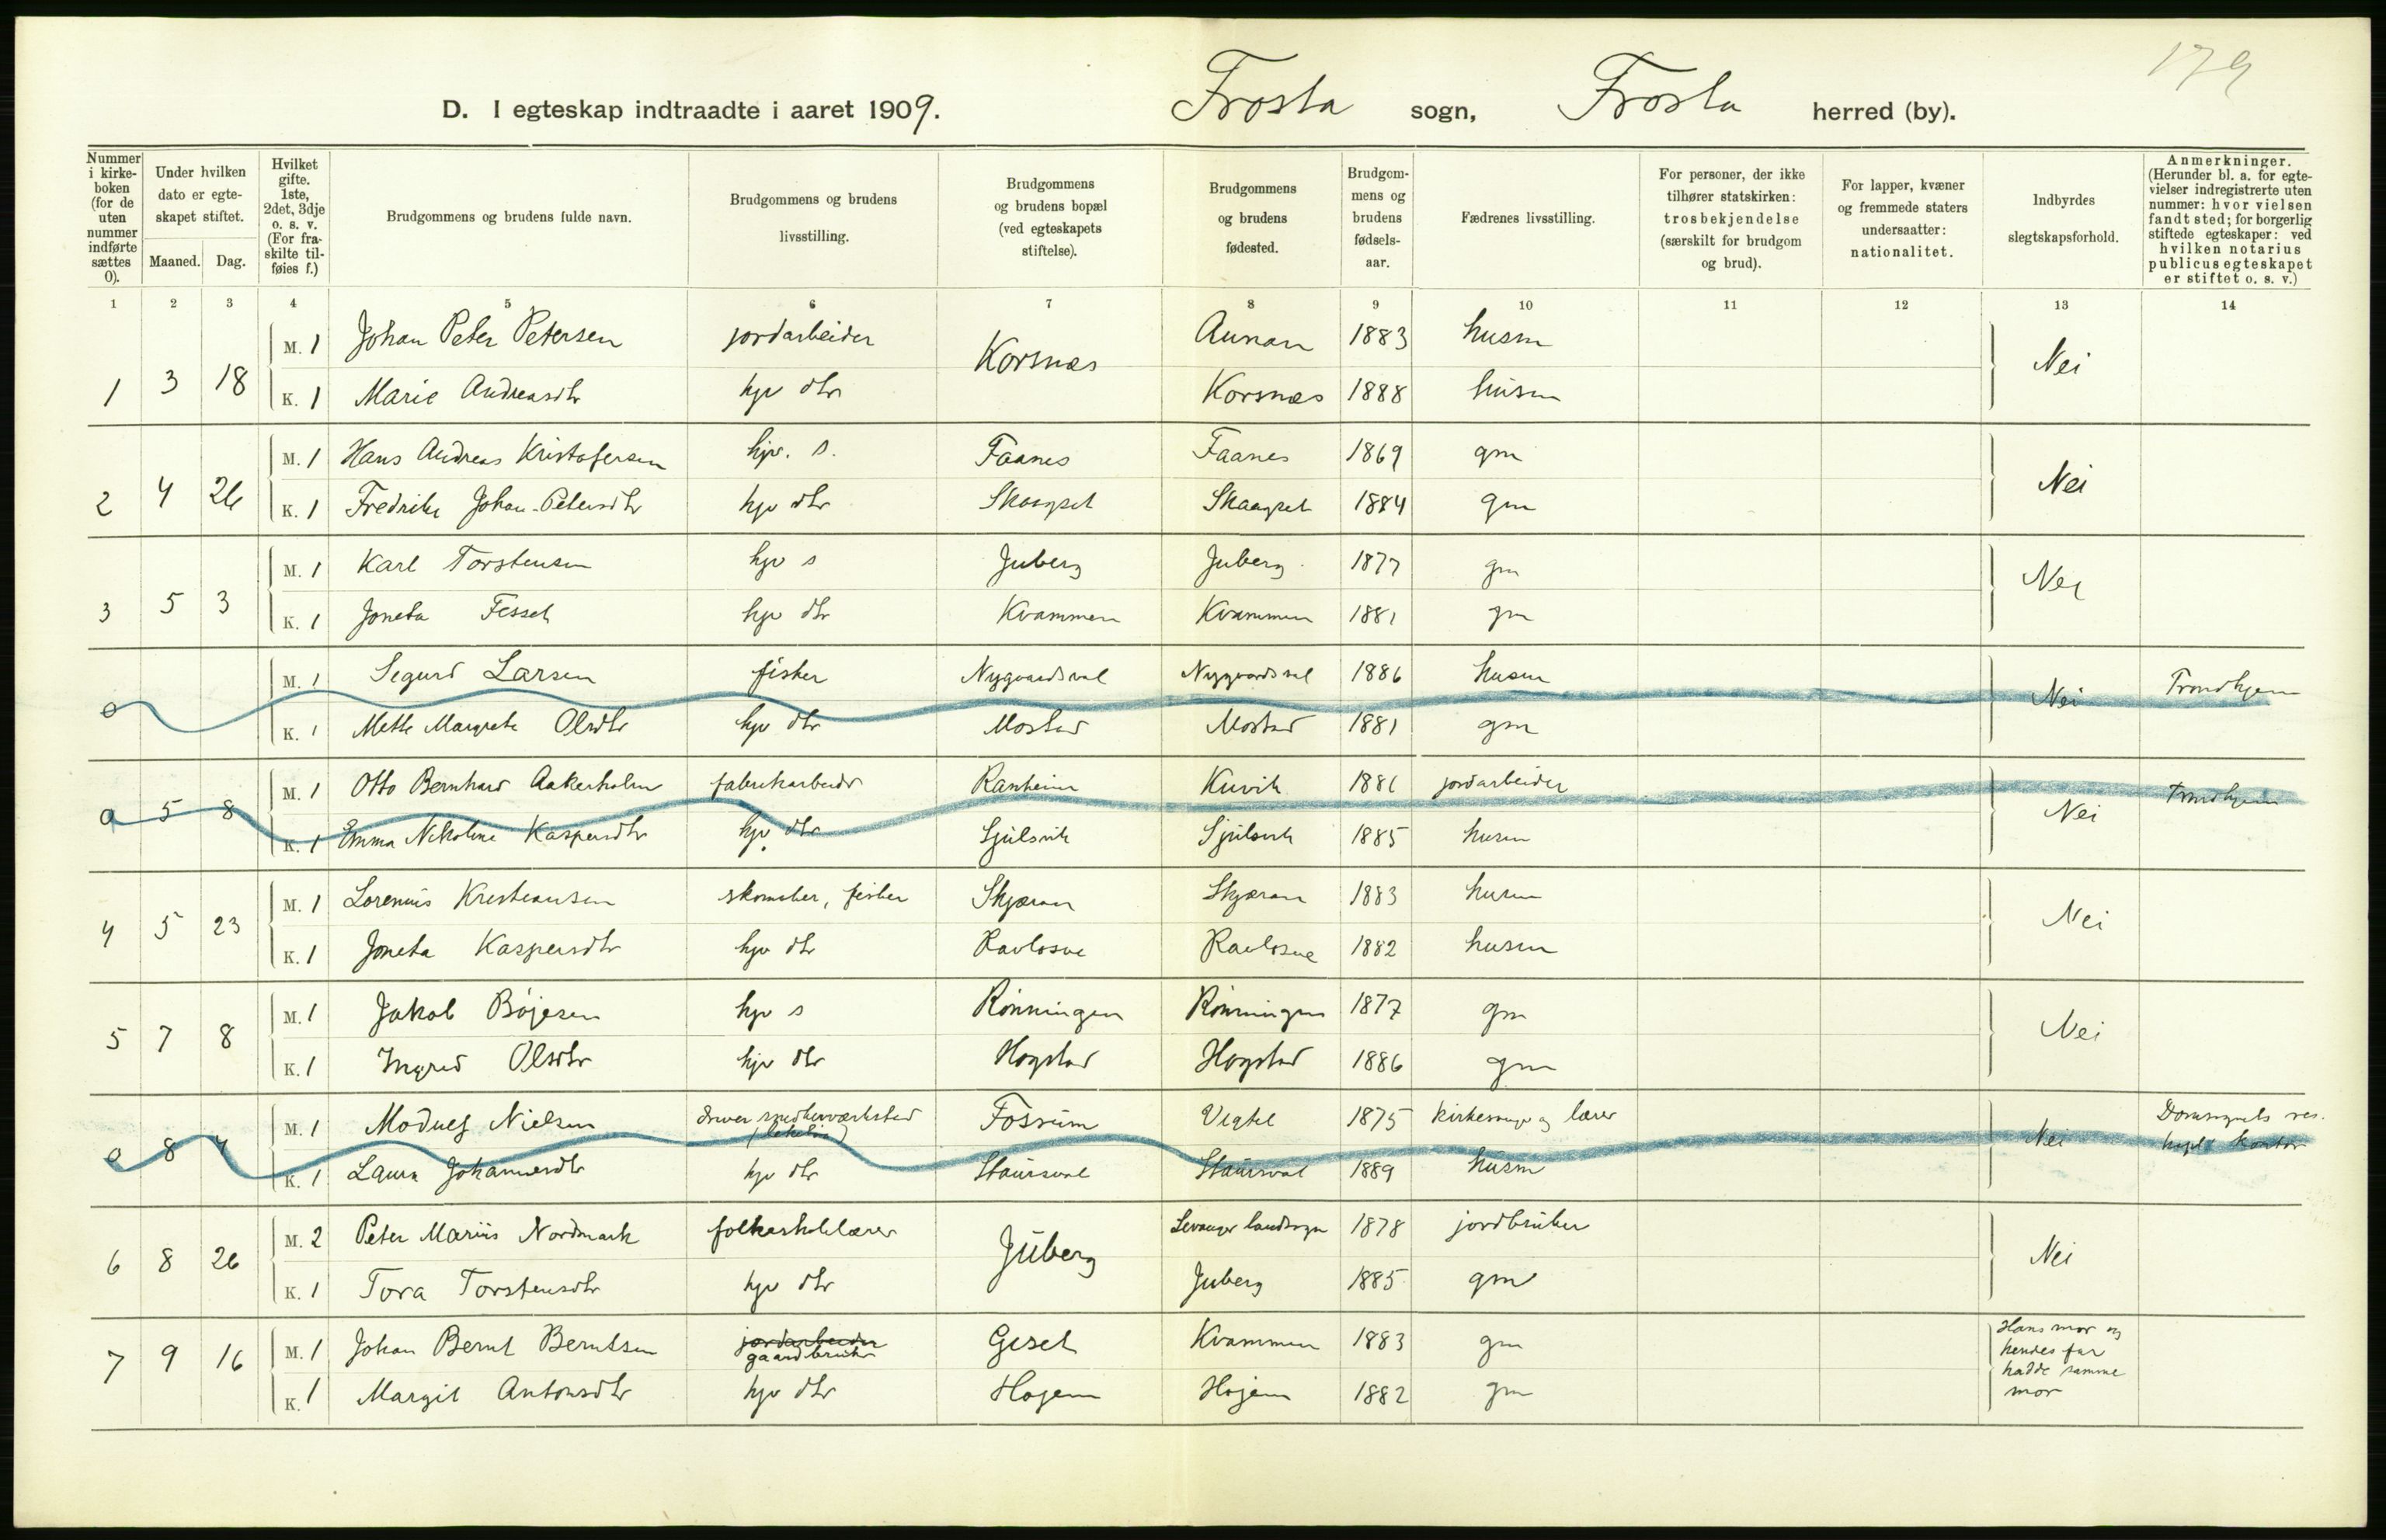 179
D. I egteskap indtraadte i aaret 1909. Frosta sogn, Frosta herred (by).
Nummer i kirkeboken (for de uten nummer indførte sættes 0).
Under hvilken dato er egteskapet stiftet.
Maaned. Dag.
Hvilket gifte. 1ste, 2det, 3dje o. s. v. (For fraskilte tilføies f.)
Brudgommens og brudens fulde navn.
Brudgommens og brudens livsstilling.
Brudgommens og brudens bopæl (ved egteskapets stiftelse).
Brudgommens og brudens fødested.
Brudgommens og brudens fødselsaar.
Fædrenes livsstilling.
For personer, der ikke tilhører statskirken: trosbekjendelse (særskilt for brudgom og brud).
For lapper, kvæner og fremmede staters undersaatter: nationalitet.
Indbyrdes slegtskapsforhold.
Anmerkninger. (Herunder bl. a. for egtevielser indregistrerte uten nummer: hvor vielsen fandt sted; for borgerlig stiftede egteskaper: ved hvilken notarius publicus egteskapet er stiftet o. s. v.)
1 2 3 4 5 6 7 8 9 10 11 12 13 14
M. 1 Johan Peter Petersen jordarbeider Korsnæs Aunan 1883 husm Nei
1 3 18 K. 1 Marie Andreasdtr hjv dtr Korsnæs 1888 husm
M. 1 Hans Andreas Kristofersen hjv. s. Faanes Faanes 1869 gm Nei
2 4 26 K. 1 Fredrike Johan-Petersdtr hjv dtr Skaagset Skaagset 1884 gm
M. 1 Karl Torstensen hjv s Juberg Juberg 1877 gm Nei
3 5 3 K. 1 Joneta Fesset hjv dtr Kvammen Kvammen 1881 gm
M. 1 Sigurd Larsen fisker Nygaardsval Nygaardsval 1886 husm Nei Trondhjem
0 K. 1 Mette Margrete Olsdtr hjv dtr Mostad Mostad 1881 gm
M. 1 Otto Bernhard Aakerholm fabrikarbeider Ranheim Kuvik 1881 jordarbeider Nei Trondhjem
0 5 8 K. 1 Emma Nikoline Kaspersdtr hjv dtr Sjulsvik Sjulsvik 1885 husm
M. 1 Lorennis Kristiansen skomaker, fisker Skjæran Skjæran 1883 husm Nei
4 5 23 K. 1 Joneta Kaspersdtr hjv dtr Ravlosve Ravlosve 1882 husm
M. 1 Jakob Böjesen hjv s Rönningen Rönningen 1877 gm Nei
5 7 8 K. 1 Ingrid Olsdtr hjv dtr Hogstad Hogstad 1886 gm
M. 1 Moduef Nielsen driver snedkerværksted Fossum Vigtil 1875 kirkesanger og lærer Nei Domsognets res. kapls kontor
0 8 7 K. 1 Laura Johannesdtr hjv dtr Staursval Staursval 1889 husm
M. 2 Peter Marius Nordmark folkeskolelærer Juberg Levanger landsogn 1878 jordbruker Nei
6 8 26 K. 1 Tora Torstensdtr hjv dtr Juberg 1885 gm
M. 1 Johan Bernt Berntsen jordarbeider gaardbruker Giset Kvammen 1883 gm Hans mor og hendes far hadde samme mor
7 9 16 K. 1 Margit Antonsdtr hjv dtr Hojem Hojem 1882 gm